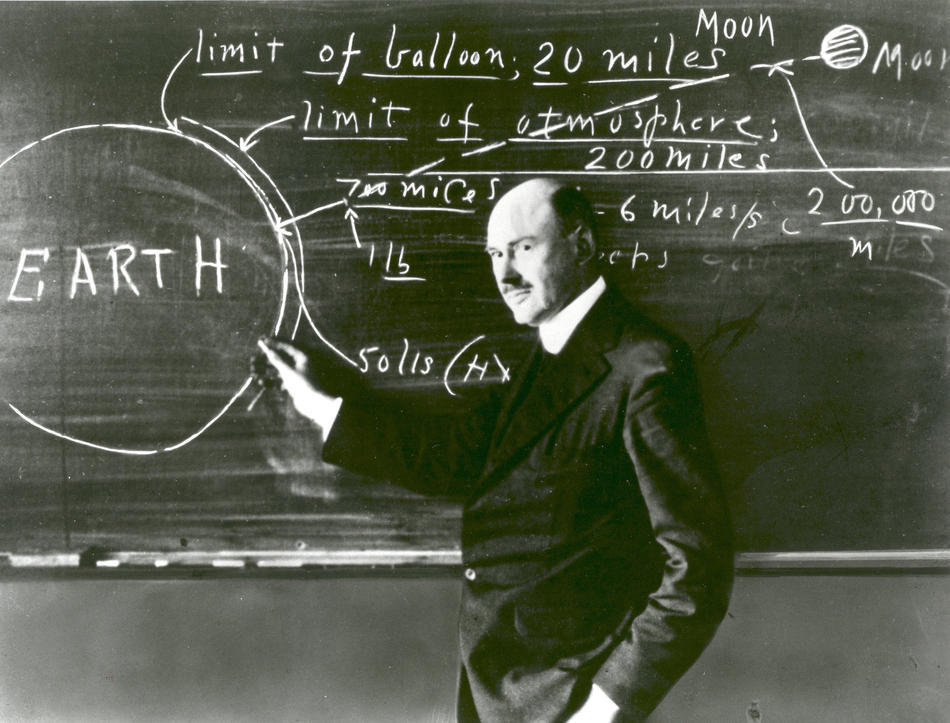 Moon
limit of balloon; 20 miles
Moon
limit of atmosphere;
200 miles
700 miles
- 6 miles/s
200,000
m
1 lb
EARTH
50 lbs (H)